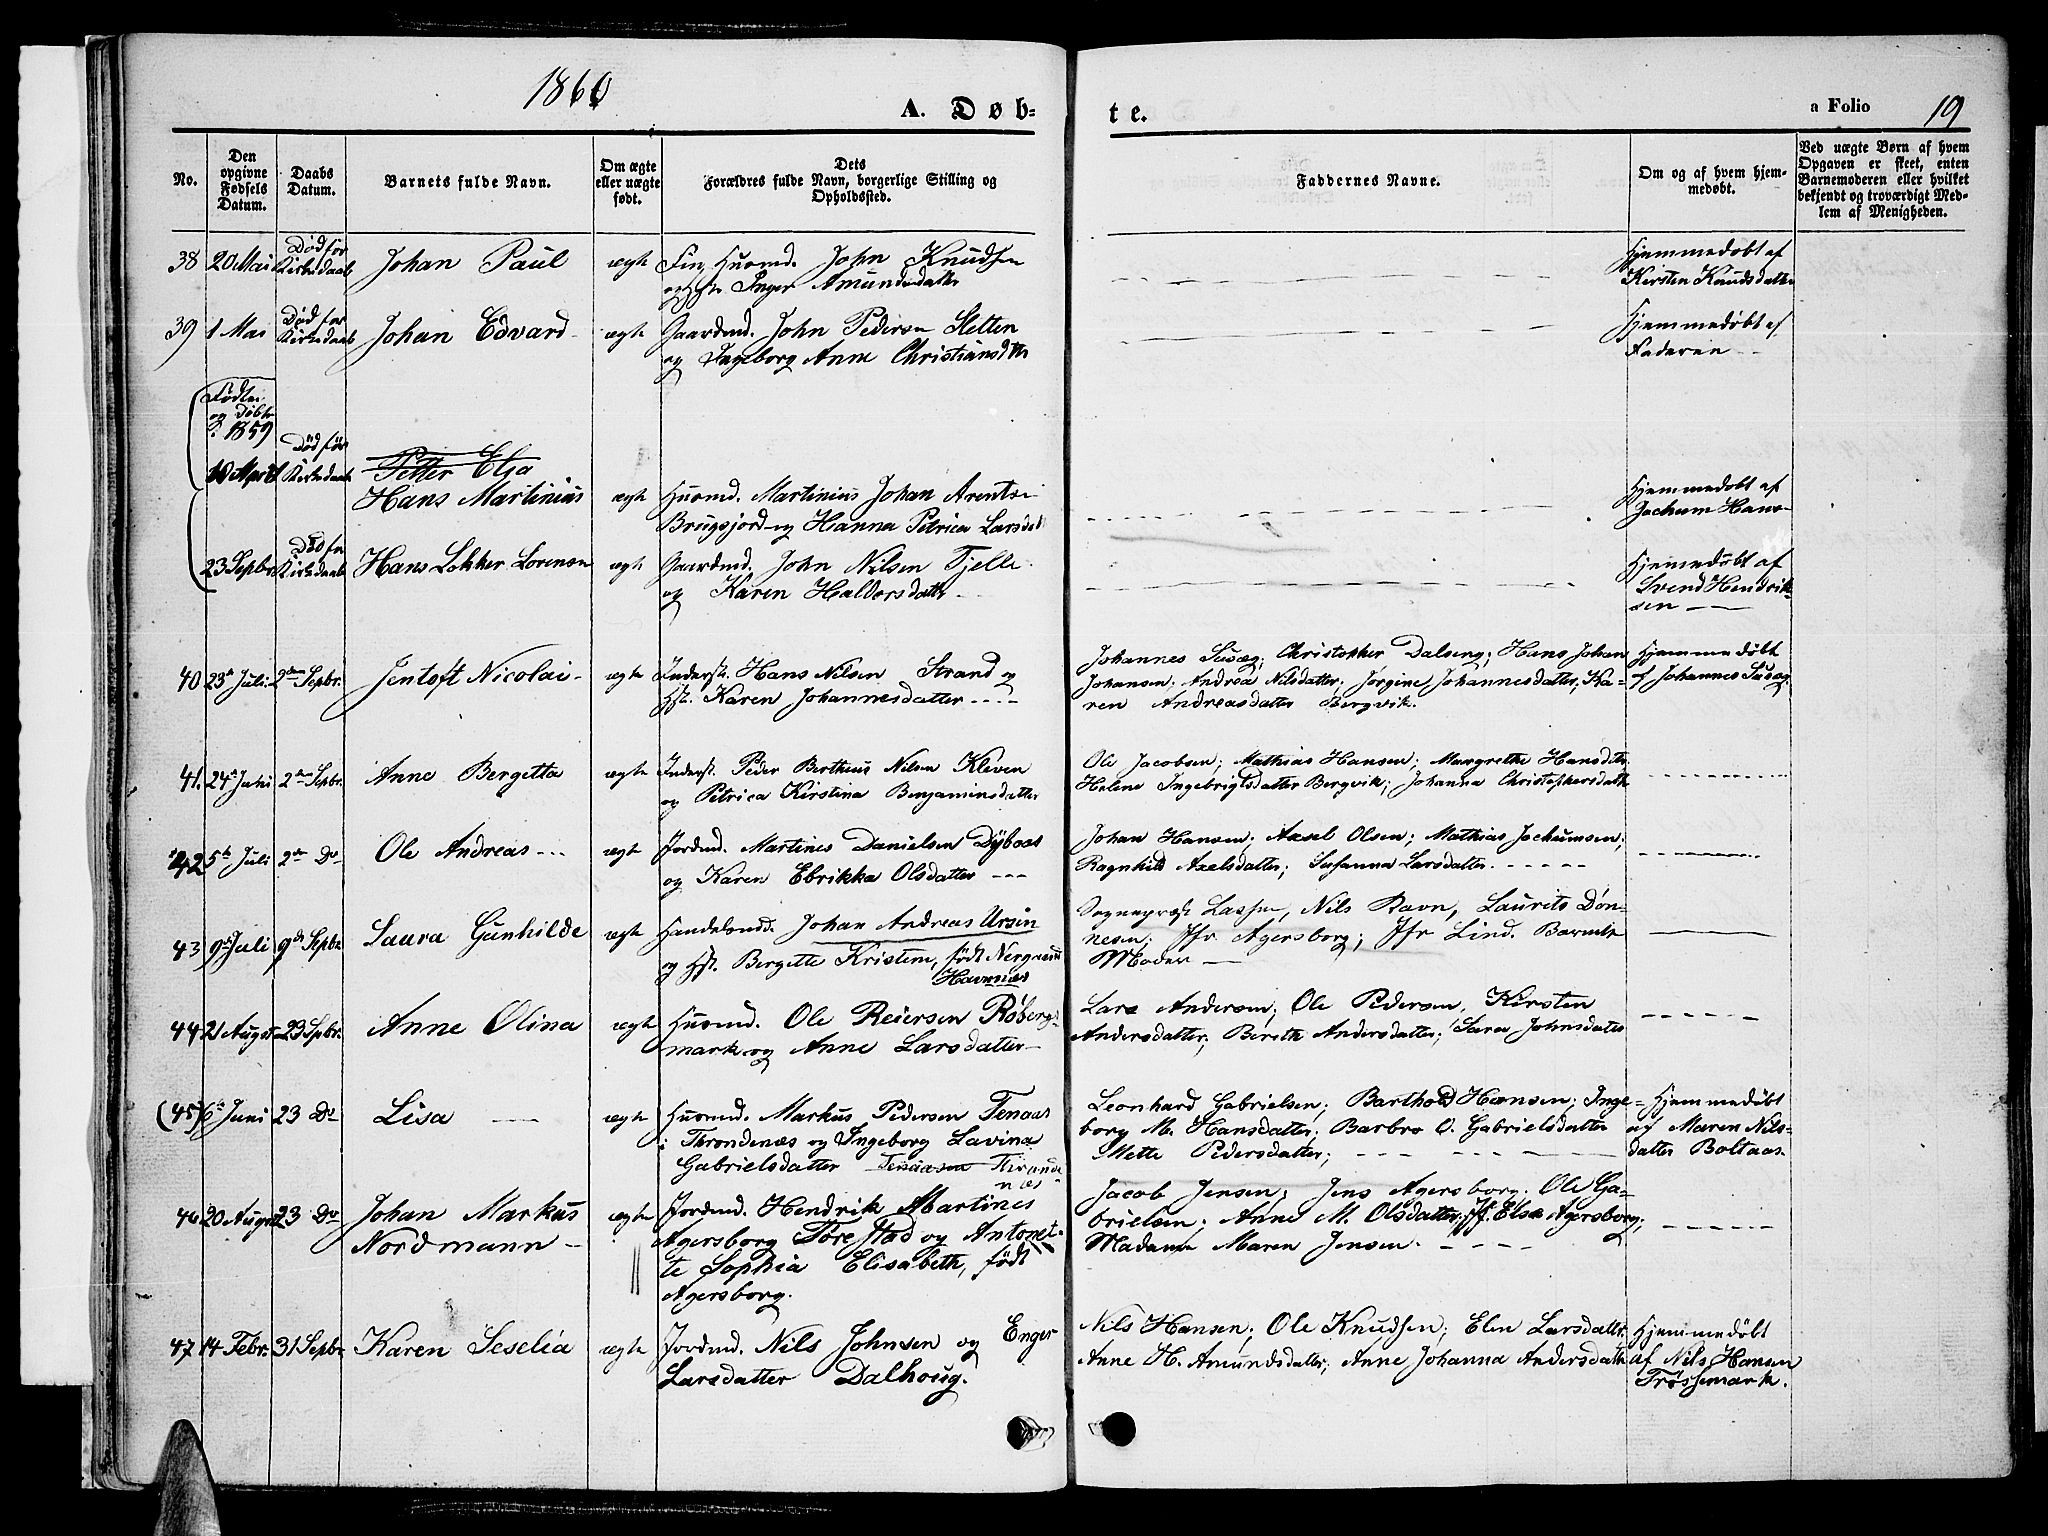 1860
A. Døb-
te.
a Folio 19
No.
Den opgivne Fødsels Datum.
Daabs Datum.
Barnets fulde Navn.
Om ægte eller uægte født.
Dets Forældres fulde Navn, borgerlige Stilling og Opholdssted.
Faddernes Navne.
Om og af hvem hjemmedøbt.
Ved uægte Børn af hvem Opgaven er skeet, enten Barnemoderen eller hvilket bekjendt og troværdigt Medlem af Menigheden.
38 20 Mai Død før Kirkedaab Johan Paul ægte Fin, Huusmd. John Knudsen
og Hst. Inger Amundsdatter
Hjemmedøbt af
Kirsten Knudsdatter
39 1 Mai Død før Kirkedaab Johan Edvard ægte Gaardmd. John Pedersen Sletten
og Ingeborg Anne Christiansdtr
Hjemmedøbt af
Faderen
Fødte og døbte
1859
10 April Død før Kirkedaab Petter Elsa
Hans Martinius ægte Huusmd. Martinius Johan Arents.
Brugsjord og Hanna Petrica Larsdt
Hjemmedøbt af
Jochum Hans-
23 Sepbr. Død før Kirkedaab Hans Lokker Lorensen ægte Gaardmd. John Nilsen Tjelle
og Karen Haldorsdatter
Hjemmedøbt af
Svend Hendrik-
sen
40 23de Juli 2den Sepbr. Jentoft Nicolai ægte Inderst. Hans Nilsen Strand og
Hst. Karen Johannesdatter
Johannes Susæg; Christopher Dalseng; Hans Johan
Johansen; Andrea Nilsdatter; Jørgine Johannesdatter; Ka-
ren Andreasdatter Bergvik.
Hjemmedøbt
af Johannes Susæg
41. 24de Juni 2den Sepbr. Anne Bergetta ægte Inderst. Peder Berthius Nilsen Kleven
og Petrica Kirstina Benjaminsdatter
Ole Jacobsen; Mathias Hansen; Margrethe Hansdtr.
Helene Ingebrigtsdatter Bergvik; Johanna Christophersdatter
42 5te Juli 2den Do Ole Andreas ægte Jordmd. Martines Danielsen Dybaas
og Karen Ebrikka Olsdatter
Johan Hansen; Axel Olsen; Mathias Jochumsen;
Ragnhild Axelsdatter; Susanna Larsdatter.
43 9de Juli 9de Sepbr. Laura Gunhilde ægte Handelsmd. Johan Andreas Ursin
og Hst. Bergette Kristine, født Nergaard
Havnnæs
Sognepræst Lassen, Nils Ravn, Laurits Døn-
nesen; Jfr Agersborg; Jfr Lind. Barnets
Moder
44 21 August 23 Spbr. Anne Olina ægte Huusmd. Ole Reiersen Røberg-
mark og Anne Larsdatter
Lars Andersen; Ole Pedersen, Kirsten
Andersdatter; Bereth Andersdatter; Sara Johnsdatter
(45) 6te Juni 23 Do Lisa ægte Huusmd. Markus Pedersen Tenaas
i Throndenæs og Ingeborg Lavina
Gabrielsdatter
Leonhard Gabrielsen; Barthold Hansen; Inge-
borg M. Hansdatter; Barbro O. Gabrielsdatter
Mette Pedersdatter;
Hjemmedøbt
af Maren Nils-
datter Boltaas.
46 20 August 23 Do Johan Markus
Nordmann ægte Jordmd. Hendrik Martines
Agersborg Forestad og Antonet-
te Sophia Elisabeth, født
Agersborg.
Jacob Jensen; Jens Agersborg; Ole Ga-
brielsen; Anne M. Olsdatter; Jf. Elsa Agersborg;
Madame Maren Jensen.
47 14 Febr. 31 Sepbr. Karen Seselia ægte Jordmd. Nils Johnsen og Enger
Larsdatter Dalhoug.
Nils Hansen; Ole Knudsen; Elen Larsdatter
Anne H. Amundsdatter; Anne Johanna Andersdatter
Hjemmedøbt
af Nils Hansen
Trøssemark.